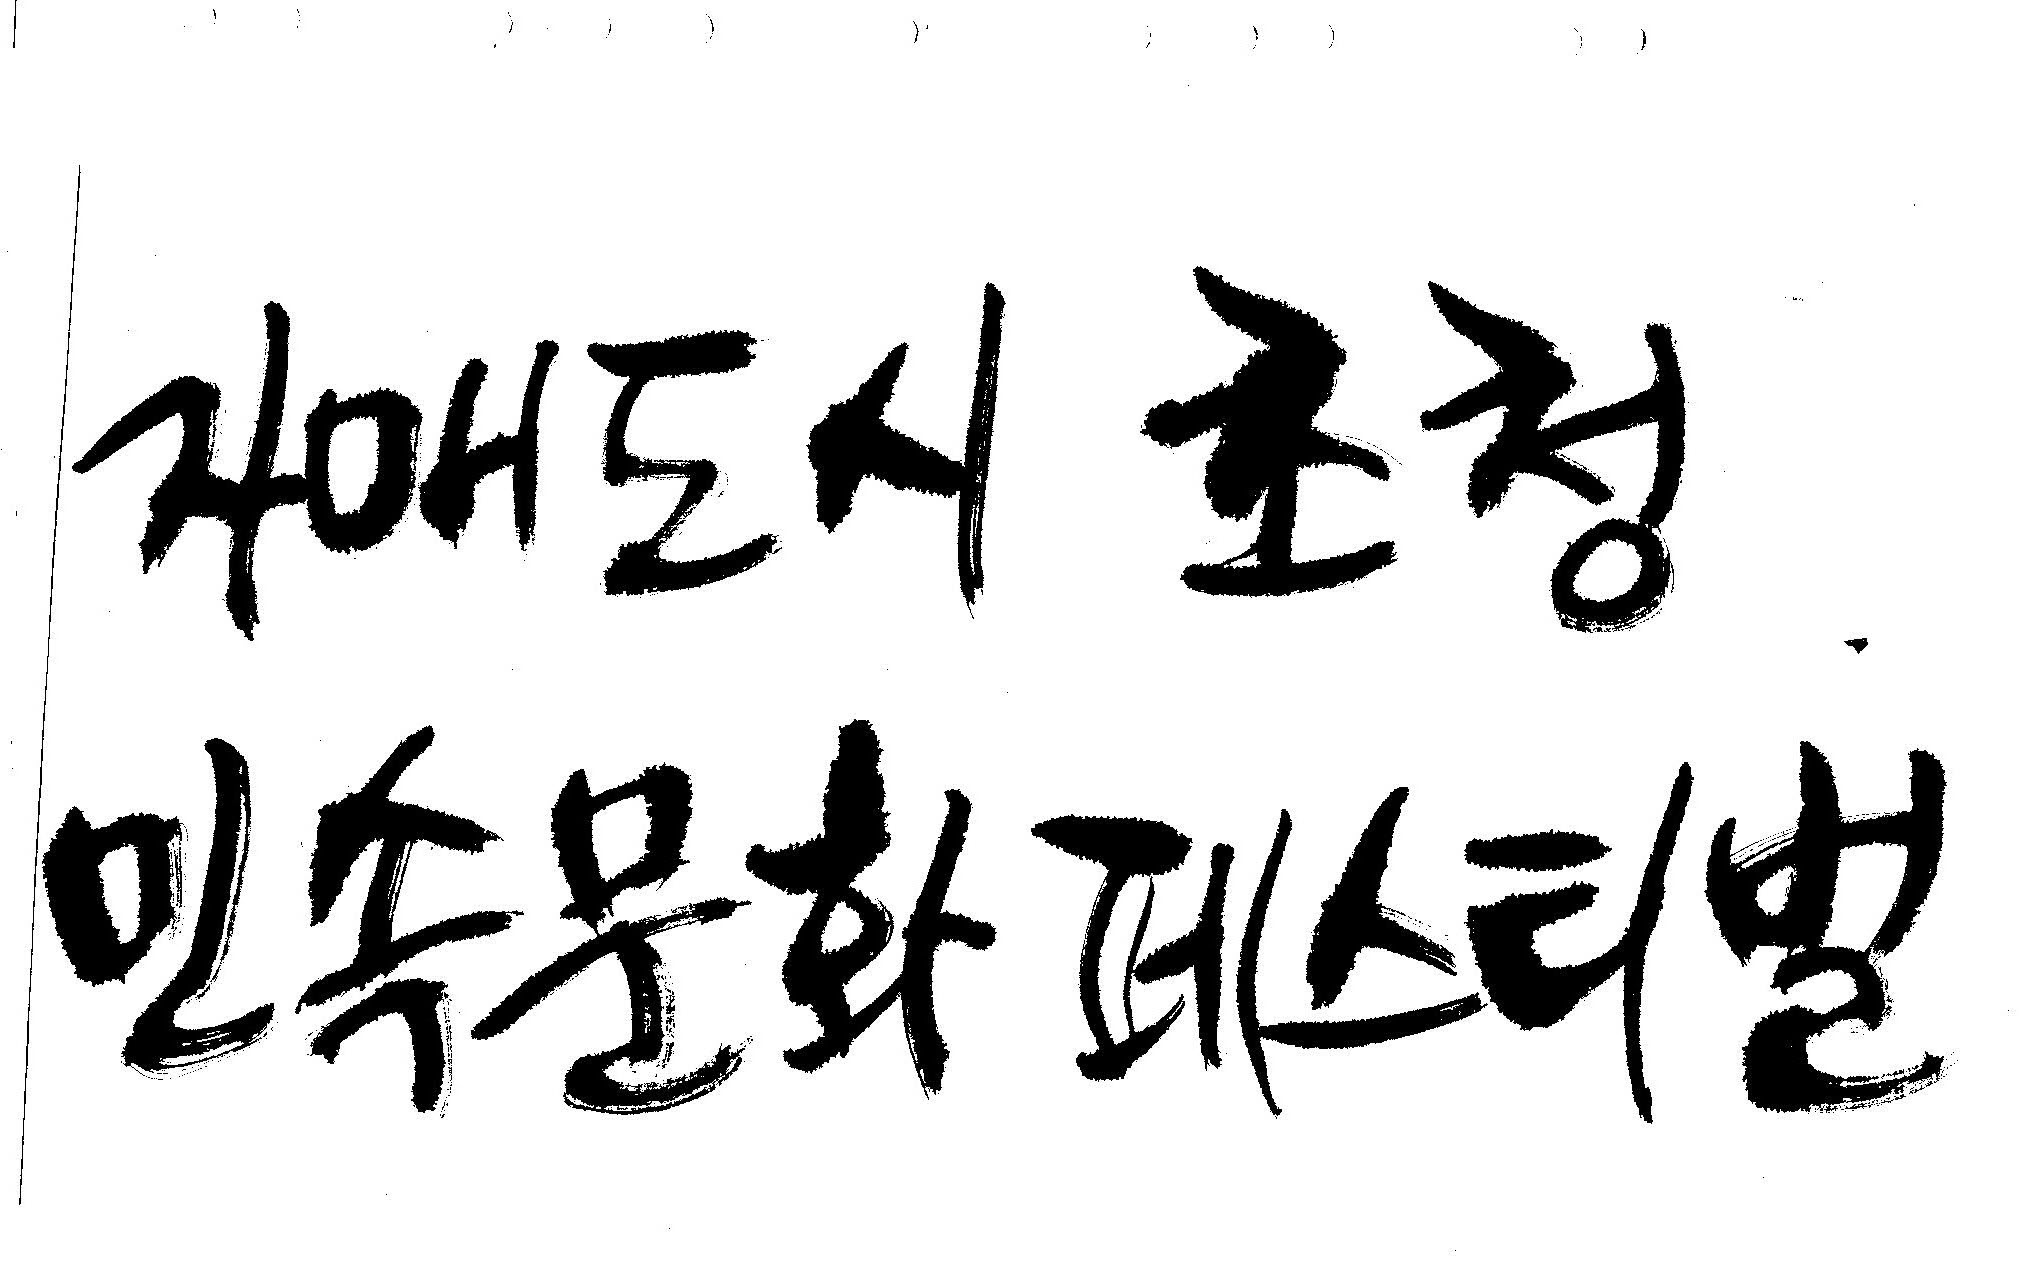 자매도시 초청
민속문화페스티벌